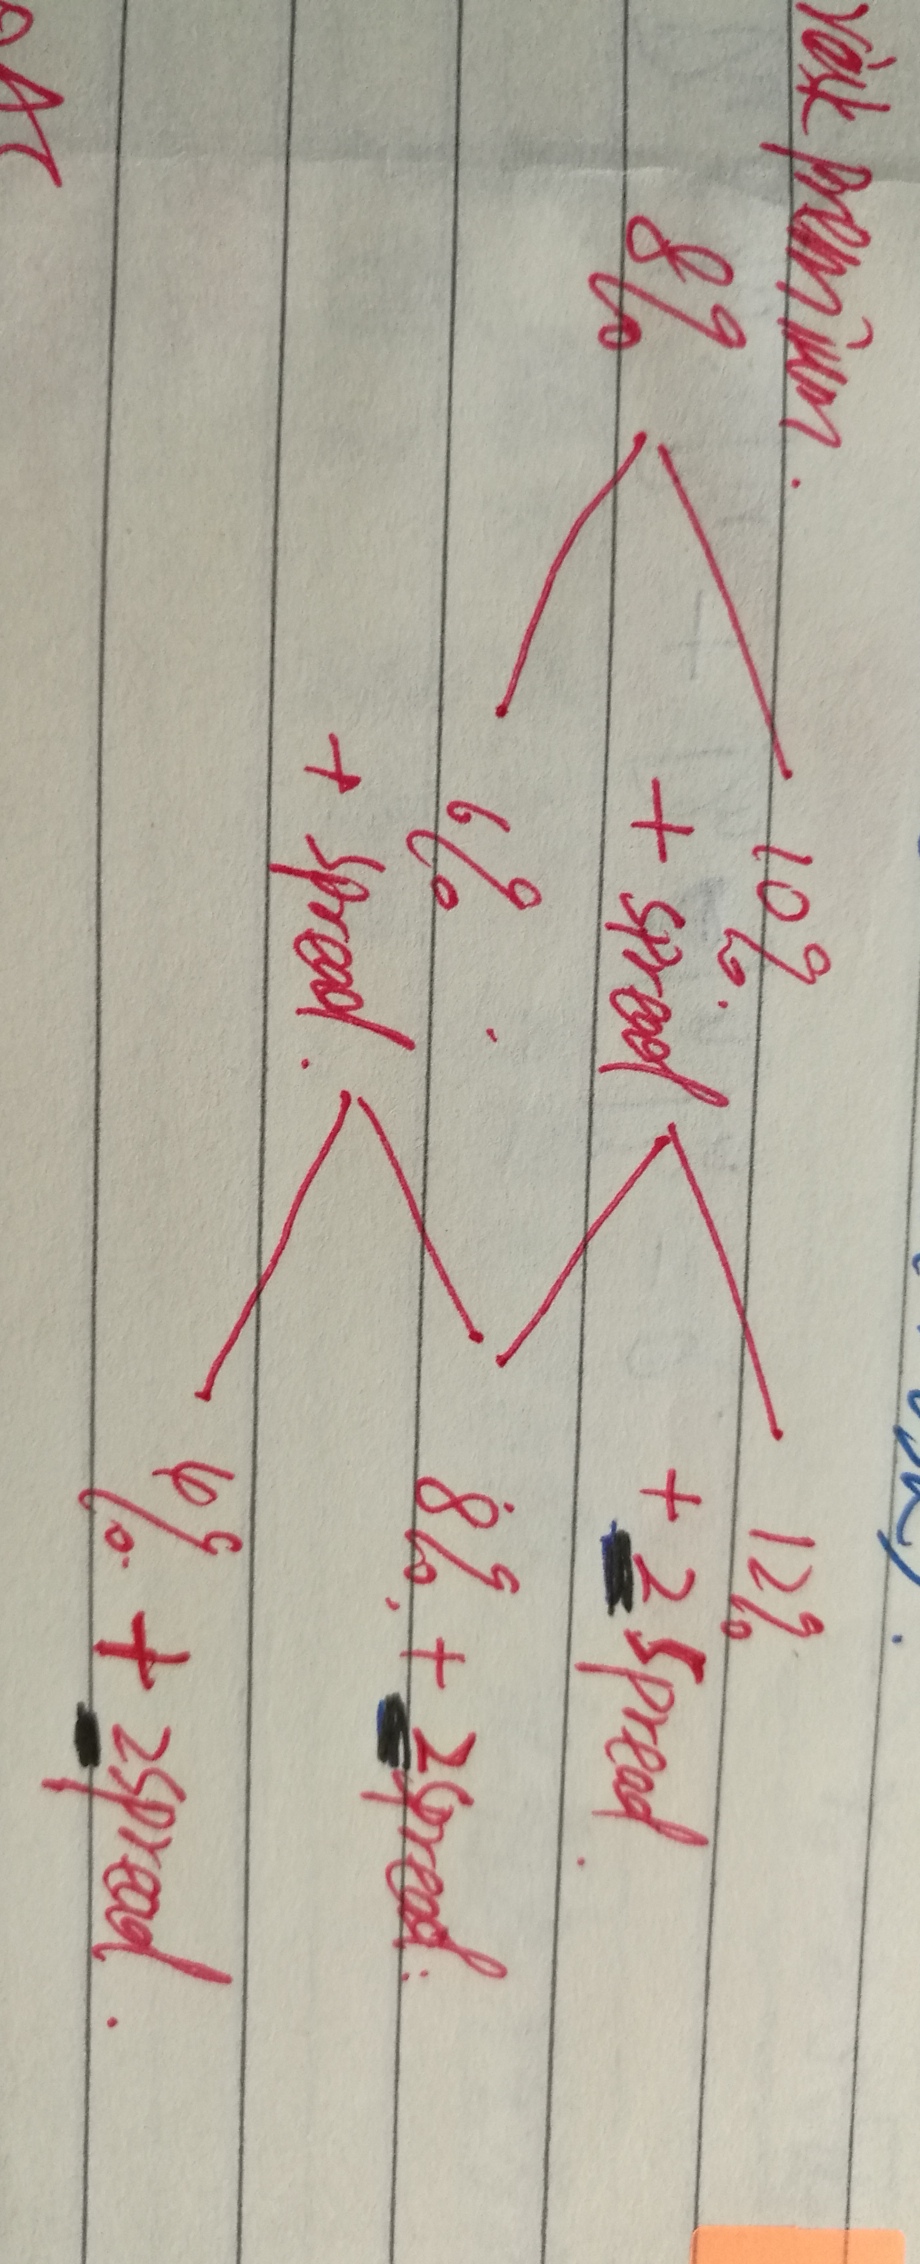 risk premium.
10%. 12%
8% + spread + 2 spread.
6% 8%. + 2 spread.
+ spread.
4%. + 2 spread.